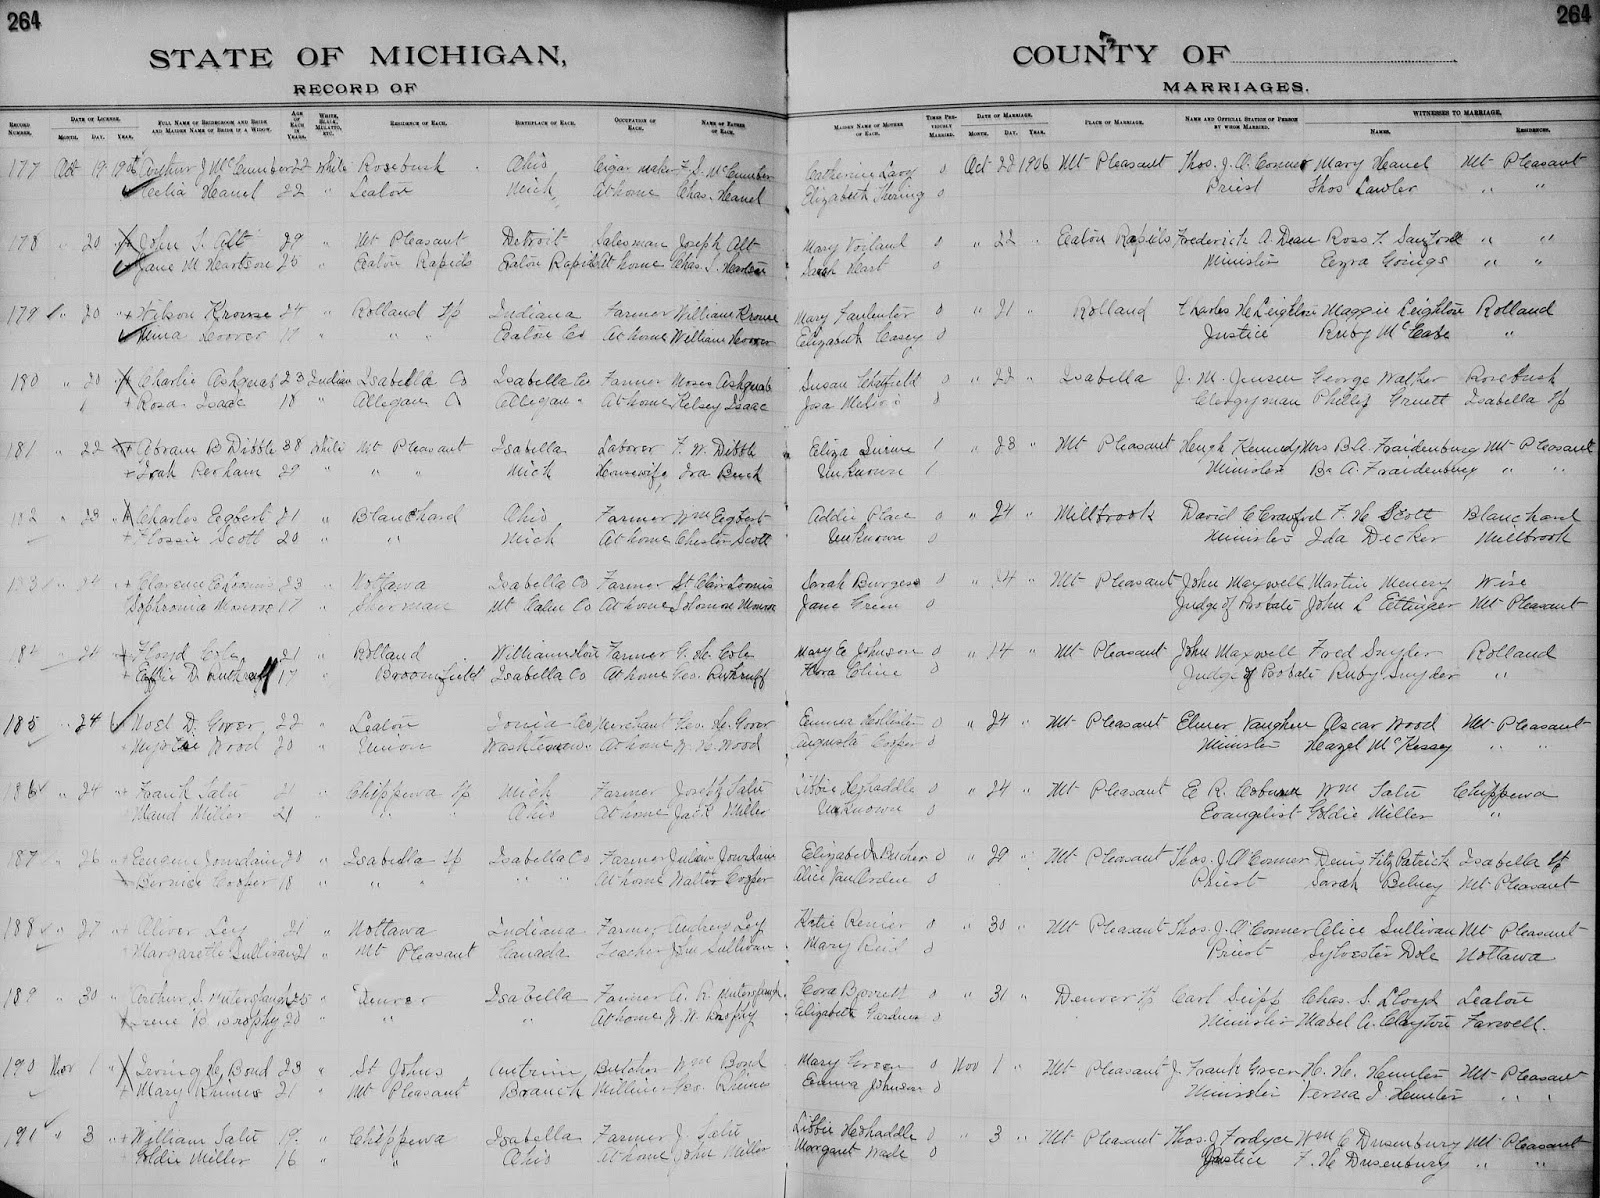 264
264
STATE OF MICHIGAN,
COUNTY OF
RECORD OF
MARRIAGES.
RECORD NUMBER.
DATE OF LICENSE.
MONTH. DAY. YEAR.
FULL NAME OF BRIDEGROOM AND BRIDE AND MAIDEN NAME OF BRIDE IF A WIDOW.
AGE OF EACH IN YEARS.
WHITE, BLACK, MULATTO, ETC.
RESIDENCE OF EACH.
BIRTHPLACE OF EACH.
OCCUPATION OF EACH.
NAME OF FATHER OF EACH.
MAIDEN NAME OF MOTHER OF EACH.
TIMES PREVIOUSLY MARRIED.
DATE OF MARRIAGE.
MONTH. DAY. YEAR.
PLACE OF MARRIAGE.
NAME AND OFFICIAL STATION OF PERSON BY WHOM MARRIED.
WITNESSES TO MARRIAGE,
NAMES.
RESIDENCES.
177 Oct 19 1906 Arthur J McCumber 22 White Rosebush Ohio Cigar maker F. S. McCumber Catherine 0 Oct 22 1906 Mt Pleasant Thos. J. O'Connor Mary Heanel Mt Pleasant
Celia Heanel 22 " Leaton Mich At home Chas. Heanel Elizabeth 0 Priest Thos Lawler " "
178 " 20 " John S. Alt 29 " Mt Pleasant Detroit Salesman Joseph Alt Mary 0 " 22 " Eaton Rapids Frederick A. Dean Ross " "
Jane M Heartson 25 " Eaton Rapids Eaton Rapids At home Chas. S. Sarah Heart 0 Minister Ezra Goings " "
179 " 20 " Wilson Krouse 24 " Rolland Tp Indiana Farmer William Krouse Mary 0 " 21 " Rolland Charles H Leighton Maggie Leighton Rolland
Hoover 17 " " " Eaton Co At home William Hoover Elizabeth Casey 0 Justice Ruby McCabe "
180 " 20 " Charlie Ashquab 23 Indian Isabella Co Isabella Co Farmer Moses Ashquab Susan Chatfield 0 " 22 " Isabella J. M. Jensen George Walker Rosebush
Rosa Isaac 18 " Allegan Co Allegan " At home Kelsey Isaac 0 Clergyman Phillip Gruett Isabella Tp
181 " 22 " Abram B Dibble 38 White Mt Pleasant Isabella Laborer F. W. Dibble Eliza 1 " 23 " Mt Pleasant Hugh Kennedy Mrs B. A. Fraidenburg Mt Pleasant
Perham 29 " " " Mich Housewife Ira Unknown 1 Minister B. A. Fraidenburg " "
182 " 23 " Charles Egbert 21 " Blanchard Ohio Farmer Wm Egbert Addie Place 0 " 24 " Millbrook David C Crawford F. H. Scott Blanchard
Flossie Scott 20 " " Mich At home Chester Scott Unknown 0 Minister Ida Decker Millbrook
183 " 24 " Clarence Loomis 23 " Nottawa Isabella Co Farmer St Clair Loomis Sarah Burgess 0 " 24 " Mt Pleasant John Maxwell Martin Wise
Sophronia Monroe 17 " Sherman At home Solomon Monroe Jane Green 0 Judge of Probate John L Ettinger Mt Pleasant
184 " 24 " Floyd Cole 21 " Rolland Williamston Farmer G. H. Cole Mary E Johnson 0 " 14 " Mt Pleasant John Maxwell Fred Snyder Rolland
Effie D. Ruthruff 17 " Broomfield Isabella Co At home Geo. Ruthruff Flora Cline 0 Judge of Probate Ruby Snyder "
185 " 24 " Noel D. Gover 22 " Leaton Ionia Co Merchant Geo. H. Gover Emma Hollister 0 " 24 " Mt Pleasant Elmer Vaughn Oscar Wood Mt Pleasant
Myrtle Wood 20 " Union Washtenaw At home W. H. Wood Augusta Cooper 0 Minister Hazel McKessey " "
186 " 24 " Frank Salu 21 " Chippewa Tp Mich Farmer Joseph Salu Libbie Heshaddle 0 " 24 " Mt Pleasant E. R. Coburn Wm Salu Chippewa
Maud Miller 21 " " " Ohio At home Jack Miller Unknown 0 Evangelist Goldie Miller "
187 " 26 " Eugene Jourdain 20 " Isabella Tp Isabella Co Farmer Julian Jourdain Elizabeth Beecher 0 " 29 " Mt Pleasant Thos. J. O'Connor Denis Fitz Patrick Isabella Tp
Bernice Cooper 18 " " " " " At home Walter Cooper Alice Van Orden 0 Priest Sarah Mt Pleasant
188 " 27 " Oliver Ley 21 " Nottawa Indiana Farmer Andrew Ley Katie Renier 0 " 30 " Mt Pleasant Thos. J. O'Connor Alice Sullivan Mt Pleasant
Margarethe Sullivan 21 " Mt Pleasant Canada Teacher John Sullivan Mary Reid 0 Priest Sylvester Dole Nottawa
189 " 30 " Arthur S. 25 " Denver Isabella Farmer A. R. Cora 0 " 31 " Denver Tp Carl Seipp Chas. S. Lloyd Leaton
Irene B Brophy 20 " " " At home W. W. Brophy Elizabeth Gardner 0 Minister Mabel A. Clayton Farwell.
190 Nov 1 " Irving Bond 23 " St Johns Antrim Butcher Wm Bond Mary Green 0 Nov 1 " Mt Pleasant J. Frank Green H. H. Hunter Mt Pleasant
Mary Grimes 21 " Mt Pleasant Branch Milliner Geo. Grimes Emma Johnson 0 Minister Verna I. Hunter " "
191 " 3 " William Salu 19 " Chippewa Isabella Farmer J. Salu Libbie Heshaddle 0 " 3 " Mt Pleasant Thos. J Fordyce Wm C Dusenbury Mt Pleasant
Goldie Miller 16 " " Ohio At home John Miller Margaret Wade 0 Justice F. H. Dusenbury " "